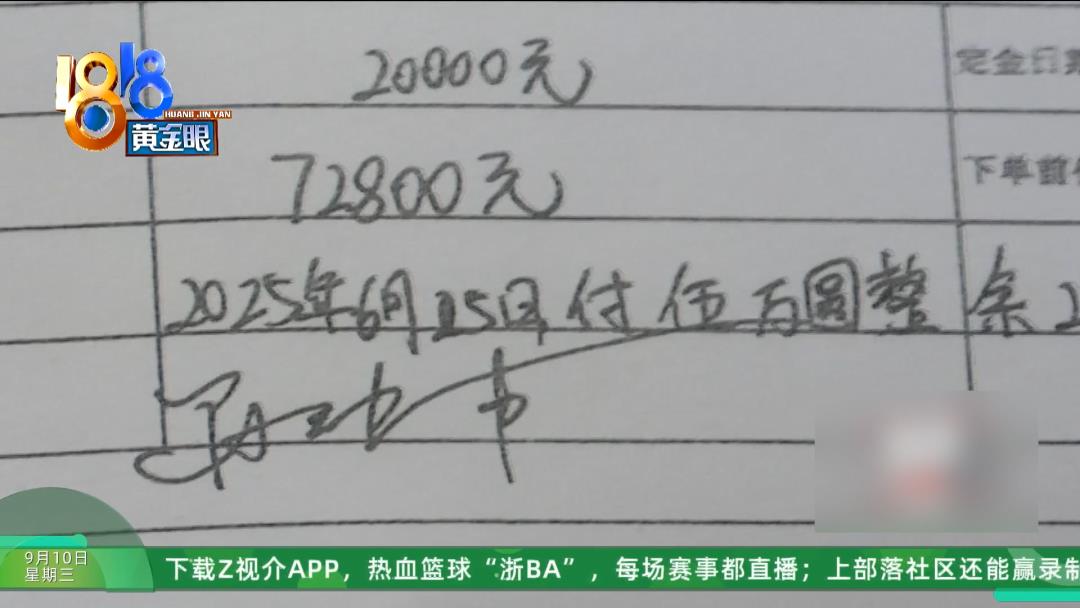 1818
HUANG JIN YAN
黄金眼
20000元
定金日
72800元
下单前
2025年6月25日付伍万圆整 余2
9月10日
星期三
下载Z视介APP，热血篮球“浙BA”，每场赛事都直播；上部落社区还能赢录制